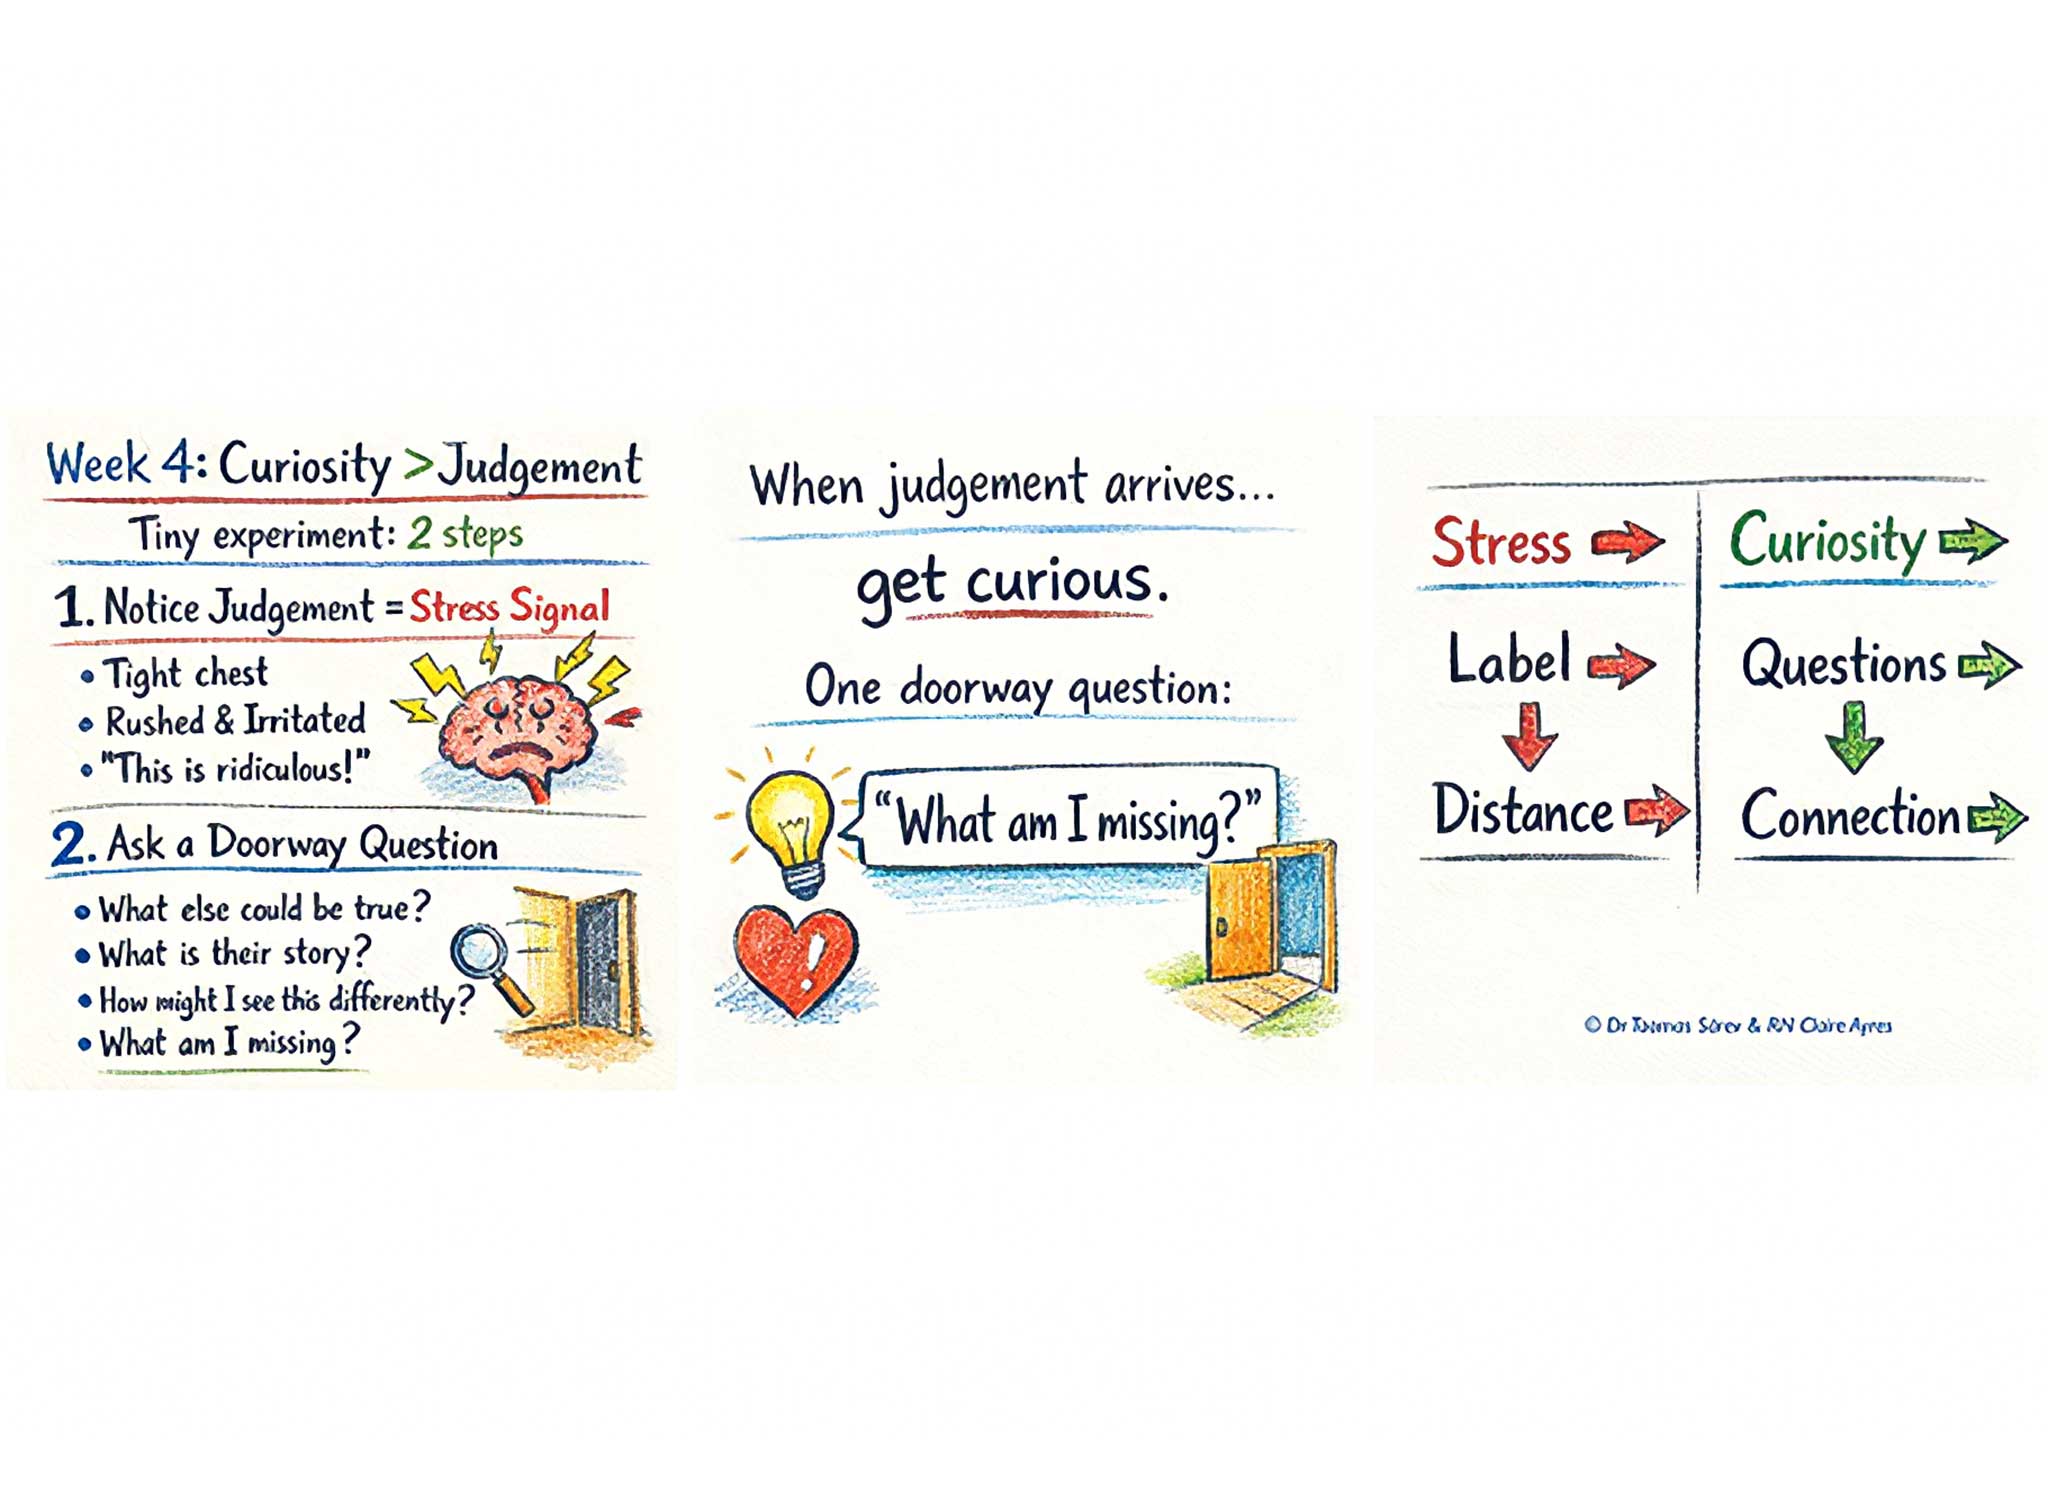 Week 4: Curiosity > Judgement
Tiny experiment: 2 steps
1. Notice Judgement = Stress Signal
• Tight chest
• Rushed & Irritated
• "This is ridiculous!"
2. Ask a Doorway Question
• What else could be true?
• What is their story?
• How might I see this differently?
• What am I missing?
When judgement arrives...
get curious.
One doorway question:
"What am I missing?"
Stress
Label
Distance
Curiosity
Questions
Connection
© Dr & RN Claire